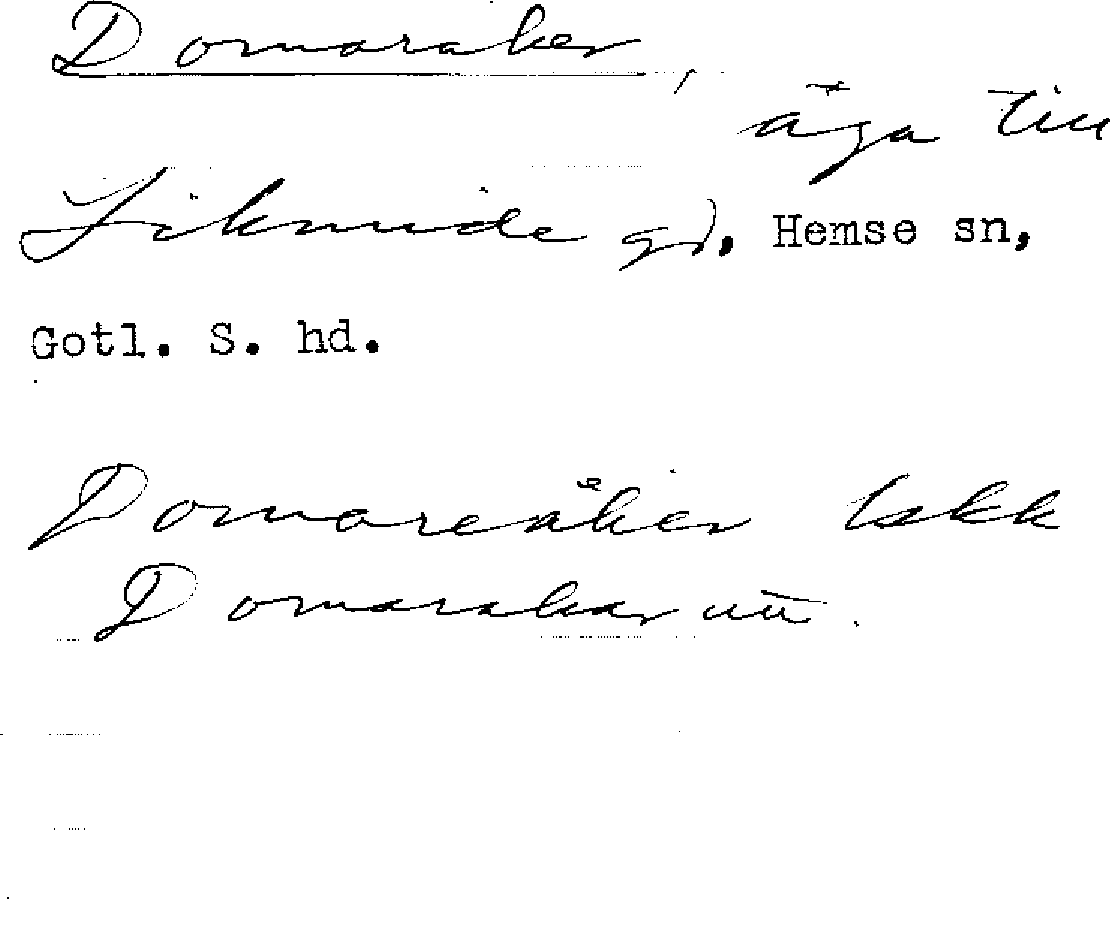 Domaraker,
äga till
Likmide gd, Hemse sn,
Gotl. S. hd.
Domareåker
Domaraker